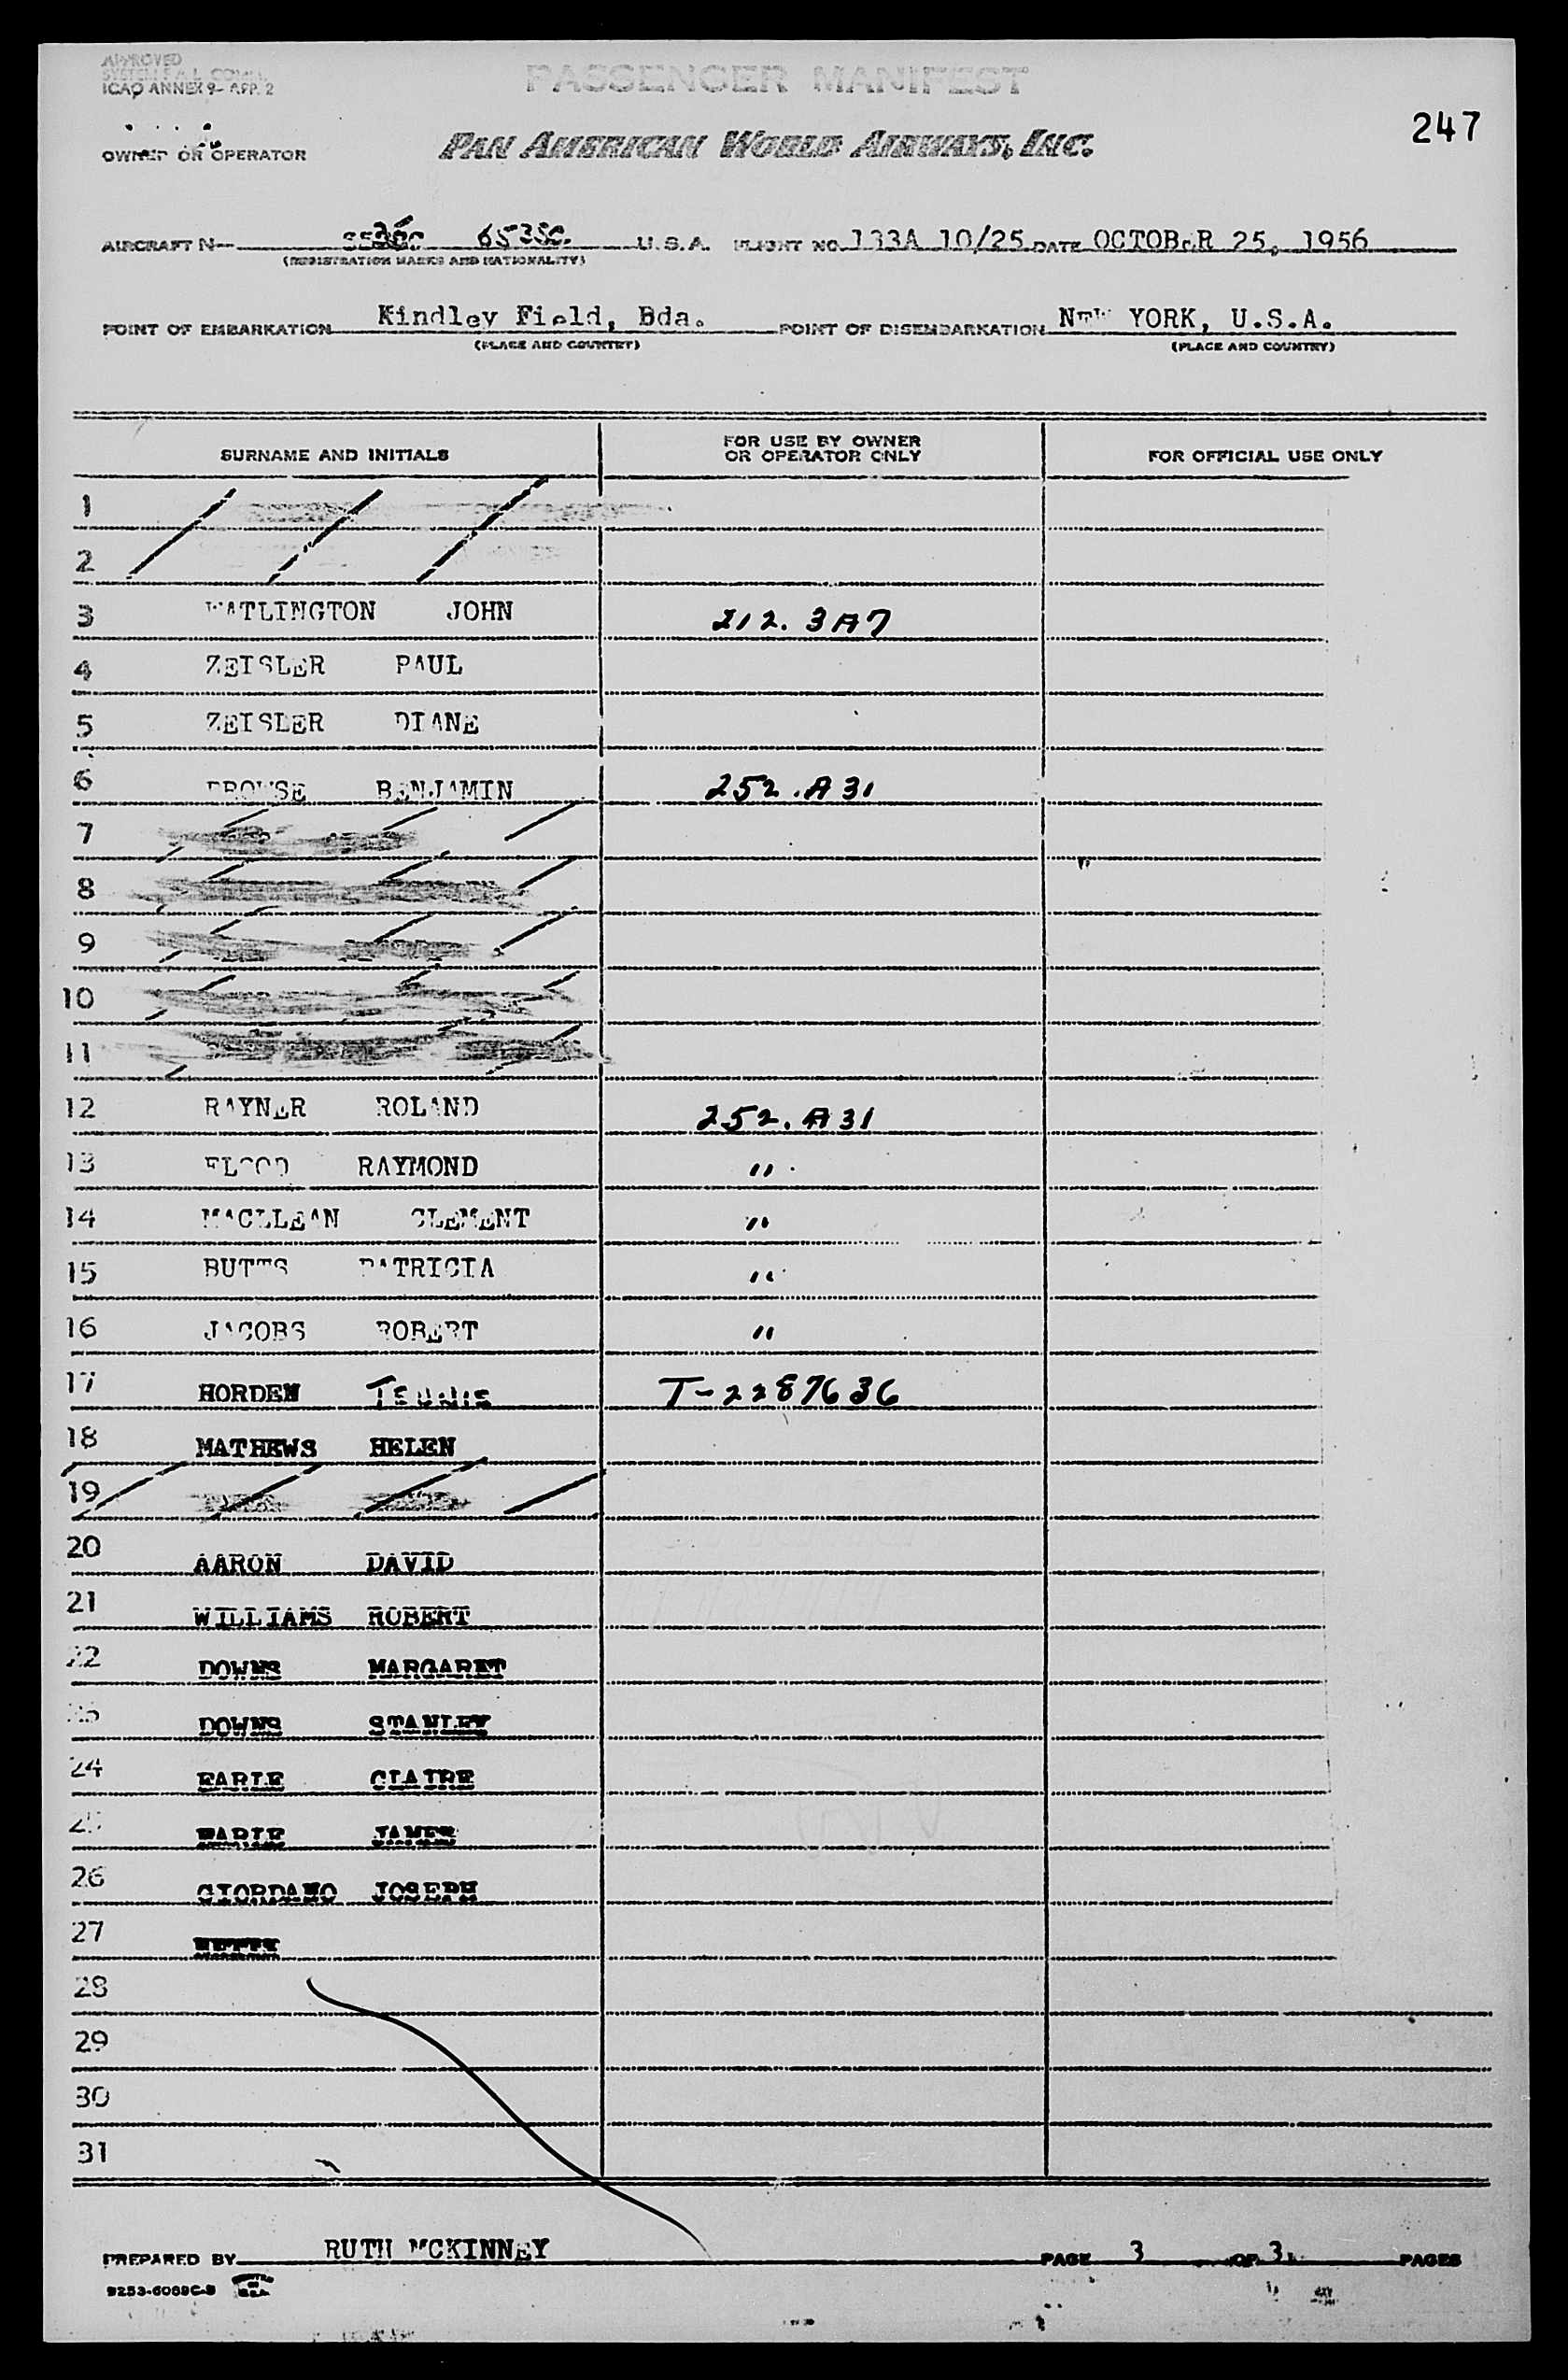 APPROVED
SYSTEM F.A.L. COMM.
ICAO ANNEX 9- APP. 2
PASSENGER MANIFEST
247
OWNER OR OPERATOR
PAN AMERICAN WORLD AIRWAYS, INC.
AIRCRAFT N- 6535C. U.S.A. FLIGHT NO. 133A 10/25 DATE OCTOBER 25, 1956
(REGISTRATION MARKS AND NATIONALITY)
POINT OF EMBARKATION Kindley Field, Bda. POINT OF DISEMBARKATION NEW YORK, U.S.A.
(PLACE AND COUNTRY) (PLACE AND COUNTRY)
SURNAME AND INITIALS FOR USE BY OWNER OR OPERATOR ONLY FOR OFFICIAL USE ONLY
1
2
3 WATLINGTON JOHN 212.3A7
4 ZEISLER PAUL
5 ZEISLER DIANE
6 BENJAMIN 252.A31
7
8
9
10
11
12 RAYNER ROLAND 252.A31
13 FLOOD RAYMOND "
14 MACLLEAN CLEMENT "
15 BUTTS PATRICIA "
16 JACOBS ROBERT "
17 HORDEN TENNIS T-2287636
18 MATHEWS HELEN
19
20 AARON DAVID
21 WILLIAMS ROBERT
22 DOWNS MARGARET
23 DOWNS STANLEY
24 EARLE CLAIRE
25 EARLE JAMES
26 GIORDANO JOSEPH
27
28
29
30
31
PREPARED BY RUTH MCKINNEY PAGE 3 OF 3 PAGES
9253-6089C-S PRINTED IN U.S.A.